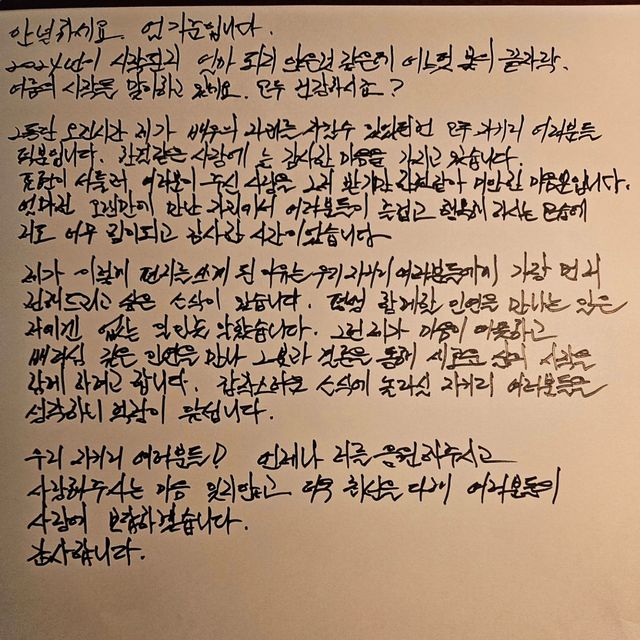 안녕하세요. 엄기준입니다.
2024년이 시작된지 얼마 되지 않은것 같은데 어느덧 봄의 끝자락.
여름의 시작을 맞이하고 있네요. 모두 건강하시죠?
그동안 오랜시간 제가 배우의 자리를 지킬수 있었던건 모두 자기리 여러분들
덕분입니다. 한결같은 사랑에 늘 감사한 마음을 가지고 있습니다.
표현이 서툴러 여러분이 주신 사랑을 그저 받기만 한것같아 미안한 마음뿐입니다.
얼마전 오랜만에 만난 자리에서 여러분들이 즐겁고 행복해 하시는 모습에
저도 너무 힘이되고 감사한 시간이었습니다
제가 이렇게 편지를 쓰게 된 이유는 우리 자기리 여러분들에게 가장 먼저
전해드리고 싶은 소식이 있습니다. 평생 함께할 인연을 만나는 일은
저에겐 없는 일인줄 알았습니다. 그런 제가 마음이 따뜻하고
배려심 깊은 인연을 만나 그분과 결혼을 통해 새로운 삶의 시작을
함께 하려고 합니다. 갑작스러운 소식에 놀라실 자기리 여러분들을
생각하니 떨림이 앞섭니다.
우리 자기리 여러분들! 언제나 저를 응원해주시고
사랑해주시는 마음 잊지않고 더욱 최선을 다해 여러분들의
사랑에 보답하겠습니다.
감사합니다.